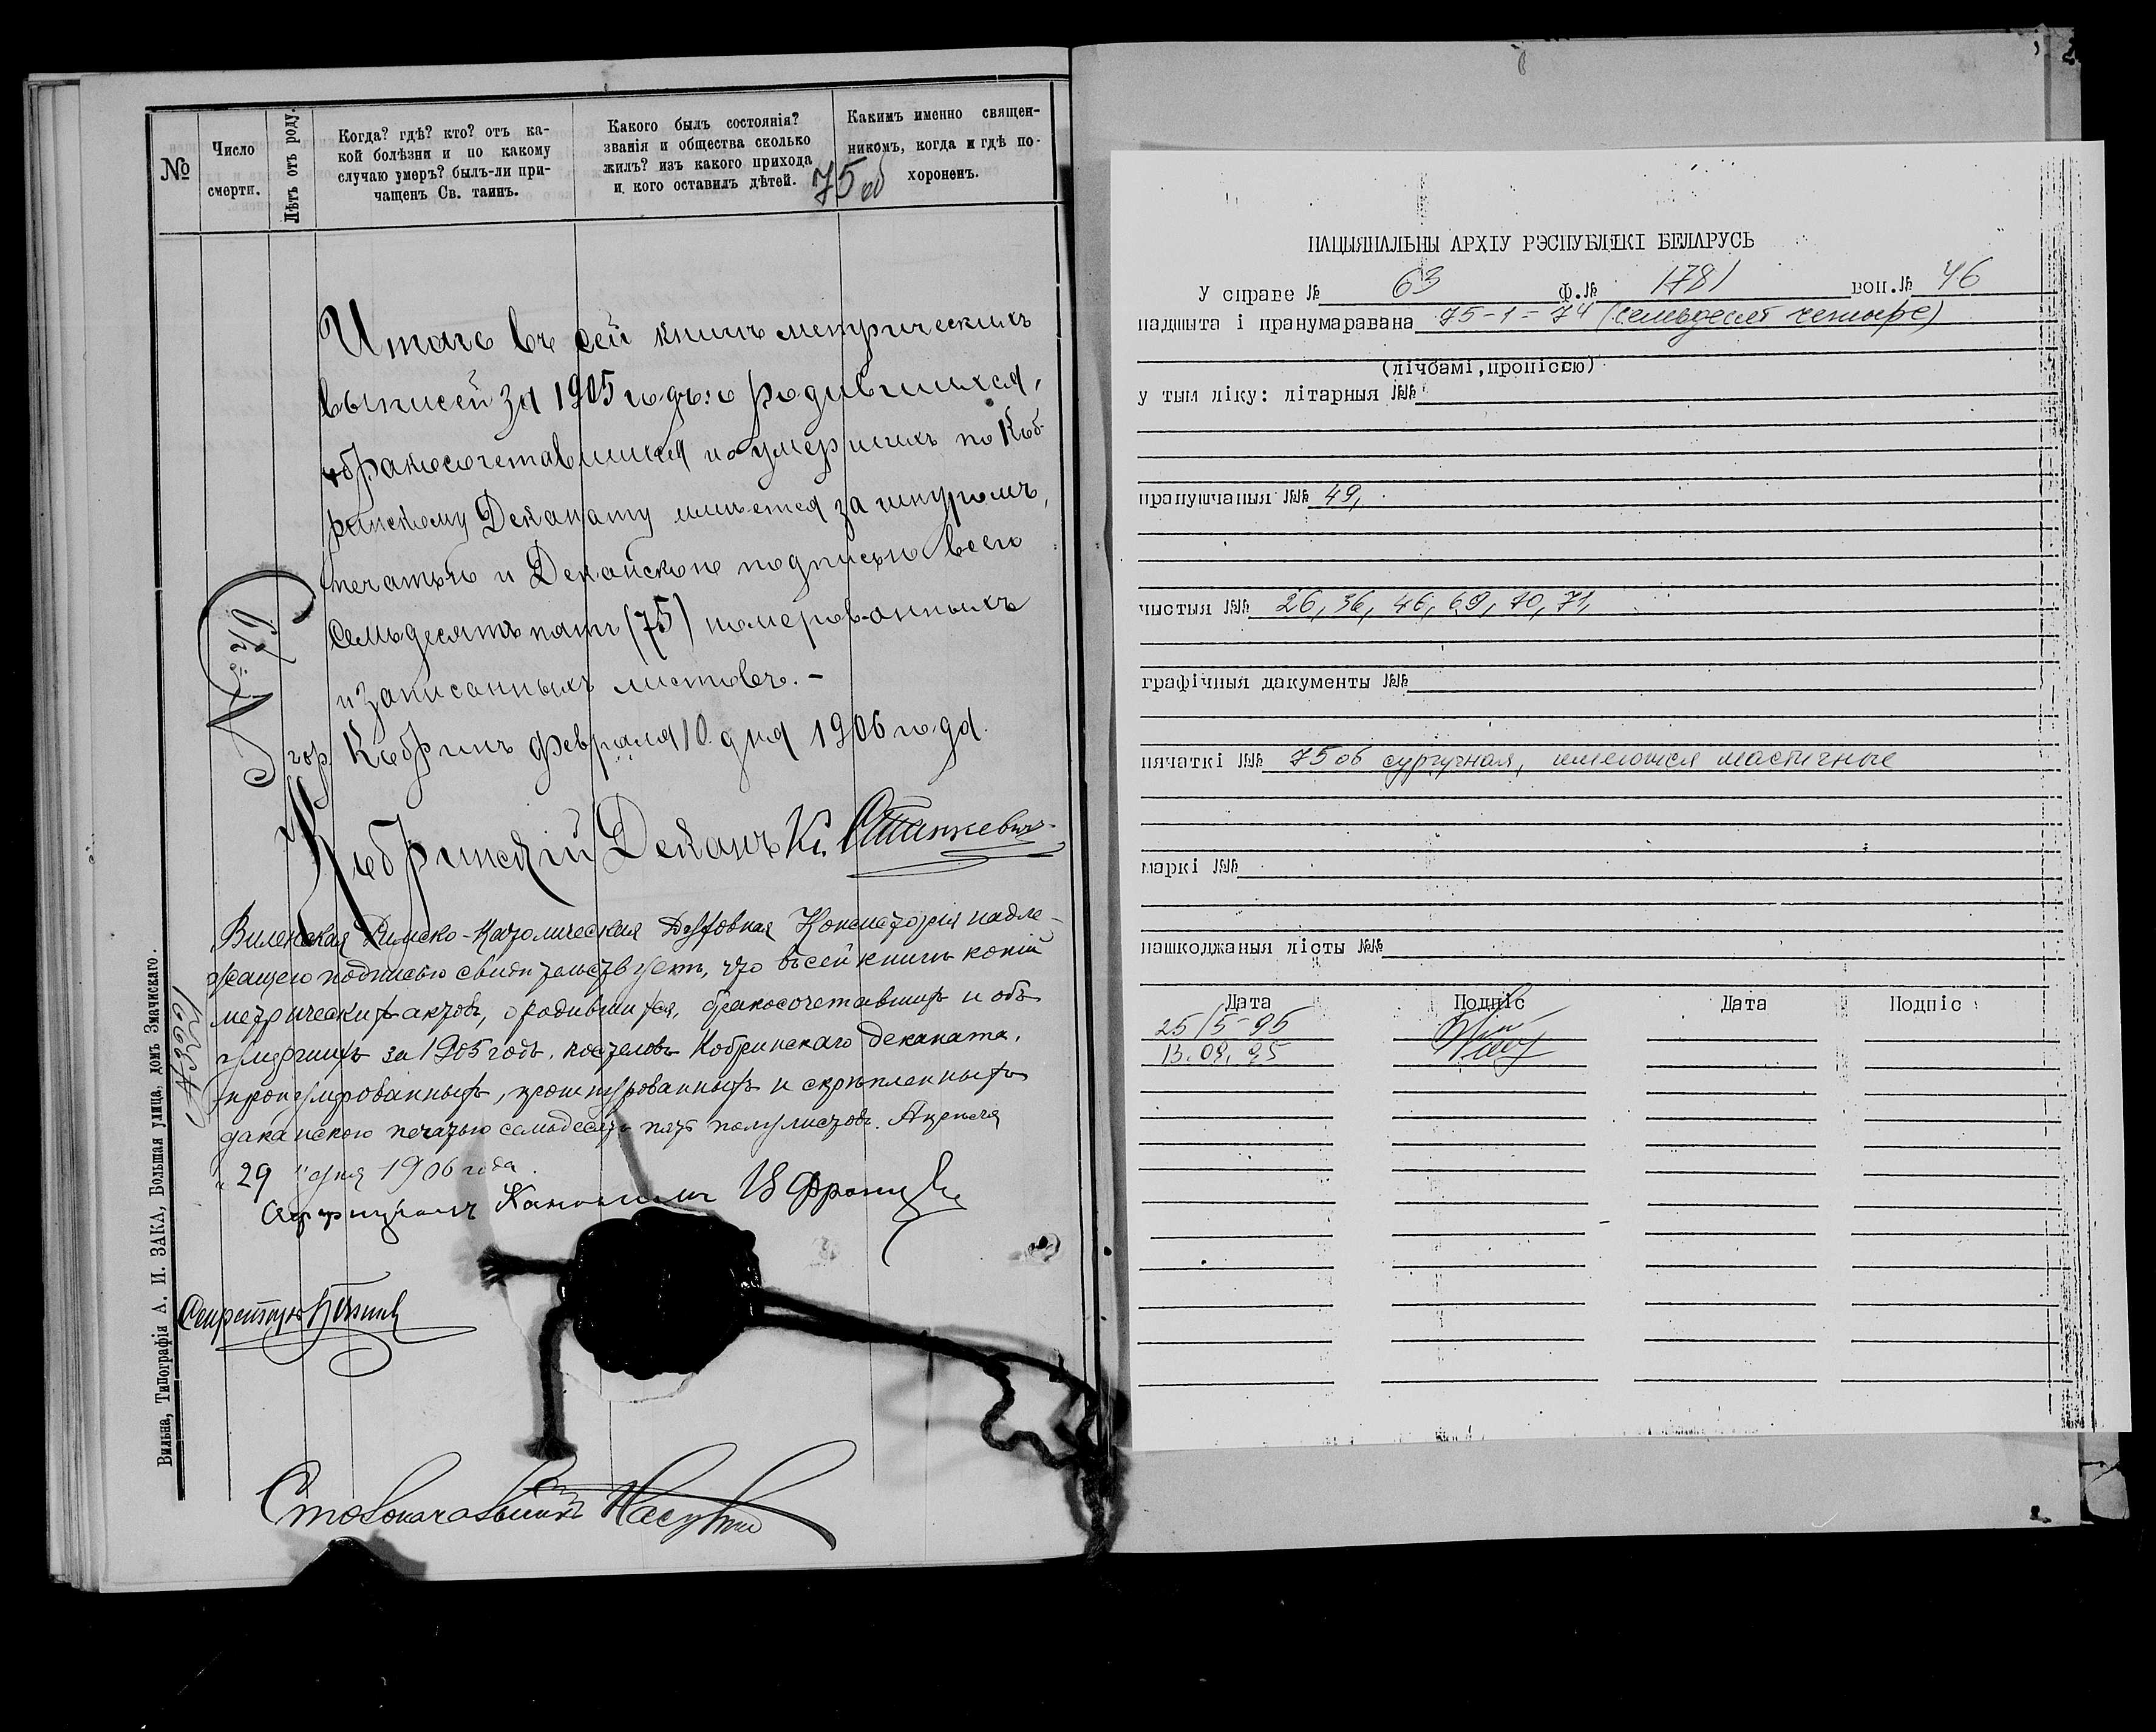 №
Число
смерти.
Лѣтъ отъ роду.
Когда? гдѣ? кто? отъ ка-
кой болѣзни и по какому
случаю умеръ? былъ-ли при-
чащенъ Св. таинъ.
Какого былъ состоянія?
званія и общества сколько
жилъ? изъ какого прихода
и кого оставилъ дѣтей.
Какимъ именно священ-
никомъ, когда и гдѣ по-
хороненъ.
75 об
Итого въ сей книгѣ метрическихъ
выписей за 1905 годъ: о родившихся,
бракосочетавшихся и умершихъ по Коб-
ринскому Деканату имѣется за шнуромъ,
печатью и Деканскою подписью всего
семьдесятъ пять (75) номерованныхъ
и записанныхъ листовъ. –
гор. Кобринъ Февраля 10 дня 1906 года.
Кобринскій Деканъ Кс. Станкевичъ
Виленская Римско-Католическая Духовная Консисторія надле-
жащею подписью свидѣтельствуетъ, что въ сей книгѣ копій
метрическихъ актовъ, о родившихся, бракосочетавшихся и объ
умершихъ за 1905 годъ, костеловъ Кобринскаго деканата,
пронумерованныхъ, прошнурованныхъ и скрѣпленныхъ
деканскою печатью семьдесятъ пять полулистовъ. Апрѣля
„29" дня 1906 года.
Секретарь
Столоначальникъ
Вильна, Типографія А. И. ЗАКА, Большая улица, домъ Значискаго.
НАЦЫЯНАЛЬНЫ АРХІУ РЭСПУБЛІКІ БЕЛАРУСЬ
У справе № 63 Ф.№ 1781 воп.№ 46
падшыта і пранумаравана 75-1=74 (семьдесят четыре)
(лічбамі,пропіссю)
у тым ліку: літарныя №№
прапушчаныя №№ 49,
чыстыя №№ 26, 36, 46, 69, 70, 71,
графічныя дакументы №№
пячаткі №№ 75 об сургучная, имеются мастичные
маркі №№
пашкоджаныя лісты №№
Дата Подпіс Дата Подпіс
25/5-95
13.09.95